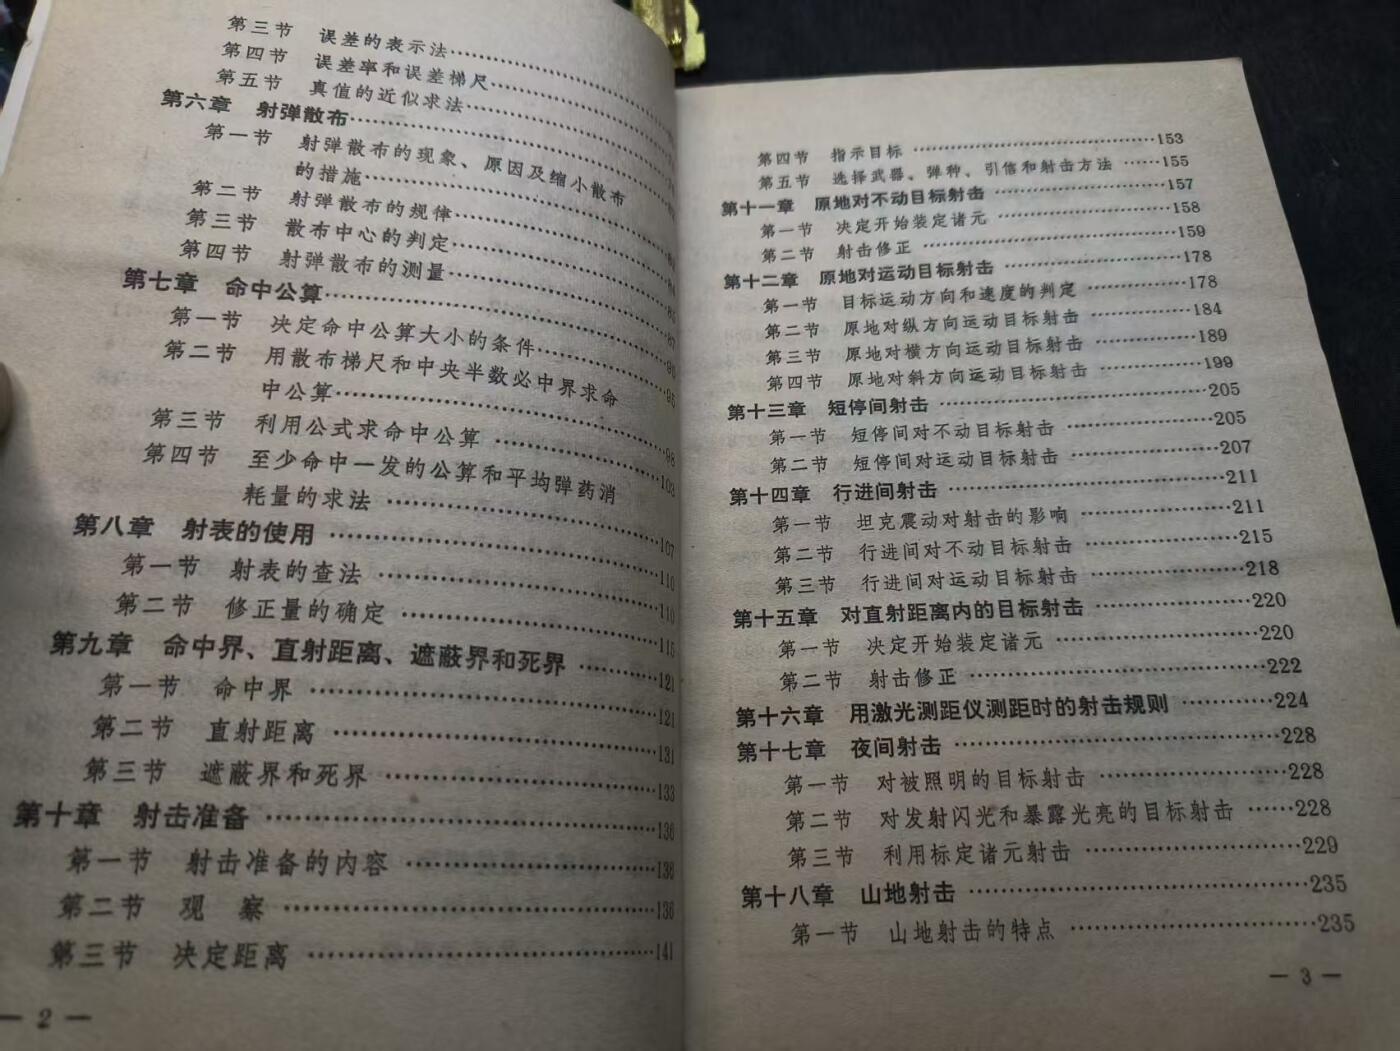 第三节 误差的表示法
第四节 误差率和误差梯尺
第五节 真值的近似求法
第六章 射弹散布
第一节 射弹散布的现象、原因及缩小散布
的措施
第二节 射弹散布的规律
第三节 散布中心的判定
第四节 射弹散布的测量
第七章 命中公算
第一节 决定命中公算大小的条件
第二节 用散布梯尺和中央半数必中界求命
中公算
第三节 利用公式求命中公算
第四节 至少命中一发的公算和平均弹药消
耗量的求法 107
第八章 射表的使用 110
第一节 射表的查法 110
第二节 修正量的确定 115
第九章 命中界、直射距离、遮蔽界和死界 121
第一节 命中界 121
第二节 直射距离 131
第三节 遮蔽界和死界 133
第十章 射击准备 136
第一节 射击准备的内容 136
第二节 观 察 136
第三节 决定距离 141
— 2 —
第四节 指示目标 153
第五节 选择武器、弹种、引信和射击方法 155
第十一章 原地对不动目标射击 157
第一节 决定开始装定诸元 158
第二节 射击修正 159
第十二章 原地对运动目标射击 178
第一节 目标运动方向和速度的判定 178
第二节 原地对纵方向运动目标射击 184
第三节 原地对横方向运动目标射击 189
第四节 原地对斜方向运动目标射击 199
第十三章 短停间射击 205
第一节 短停间对不动目标射击 205
第二节 短停间对运动目标射击 207
第十四章 行进间射击 211
第一节 坦克震动对射击的影响 211
第二节 行进间对不动目标射击 215
第三节 行进间对运动目标射击 218
第十五章 对直射距离内的目标射击 220
第一节 决定开始装定诸元 220
第二节 射击修正 222
第十六章 用激光测距仪测距时的射击规则 224
第十七章 夜间射击 228
第一节 对被照明的目标射击 228
第二节 对发射闪光和暴露光亮的目标射击 228
第三节 利用标定诸元射击 229
第十八章 山地射击 235
第一节 山地射击的特点 235
— 3 —